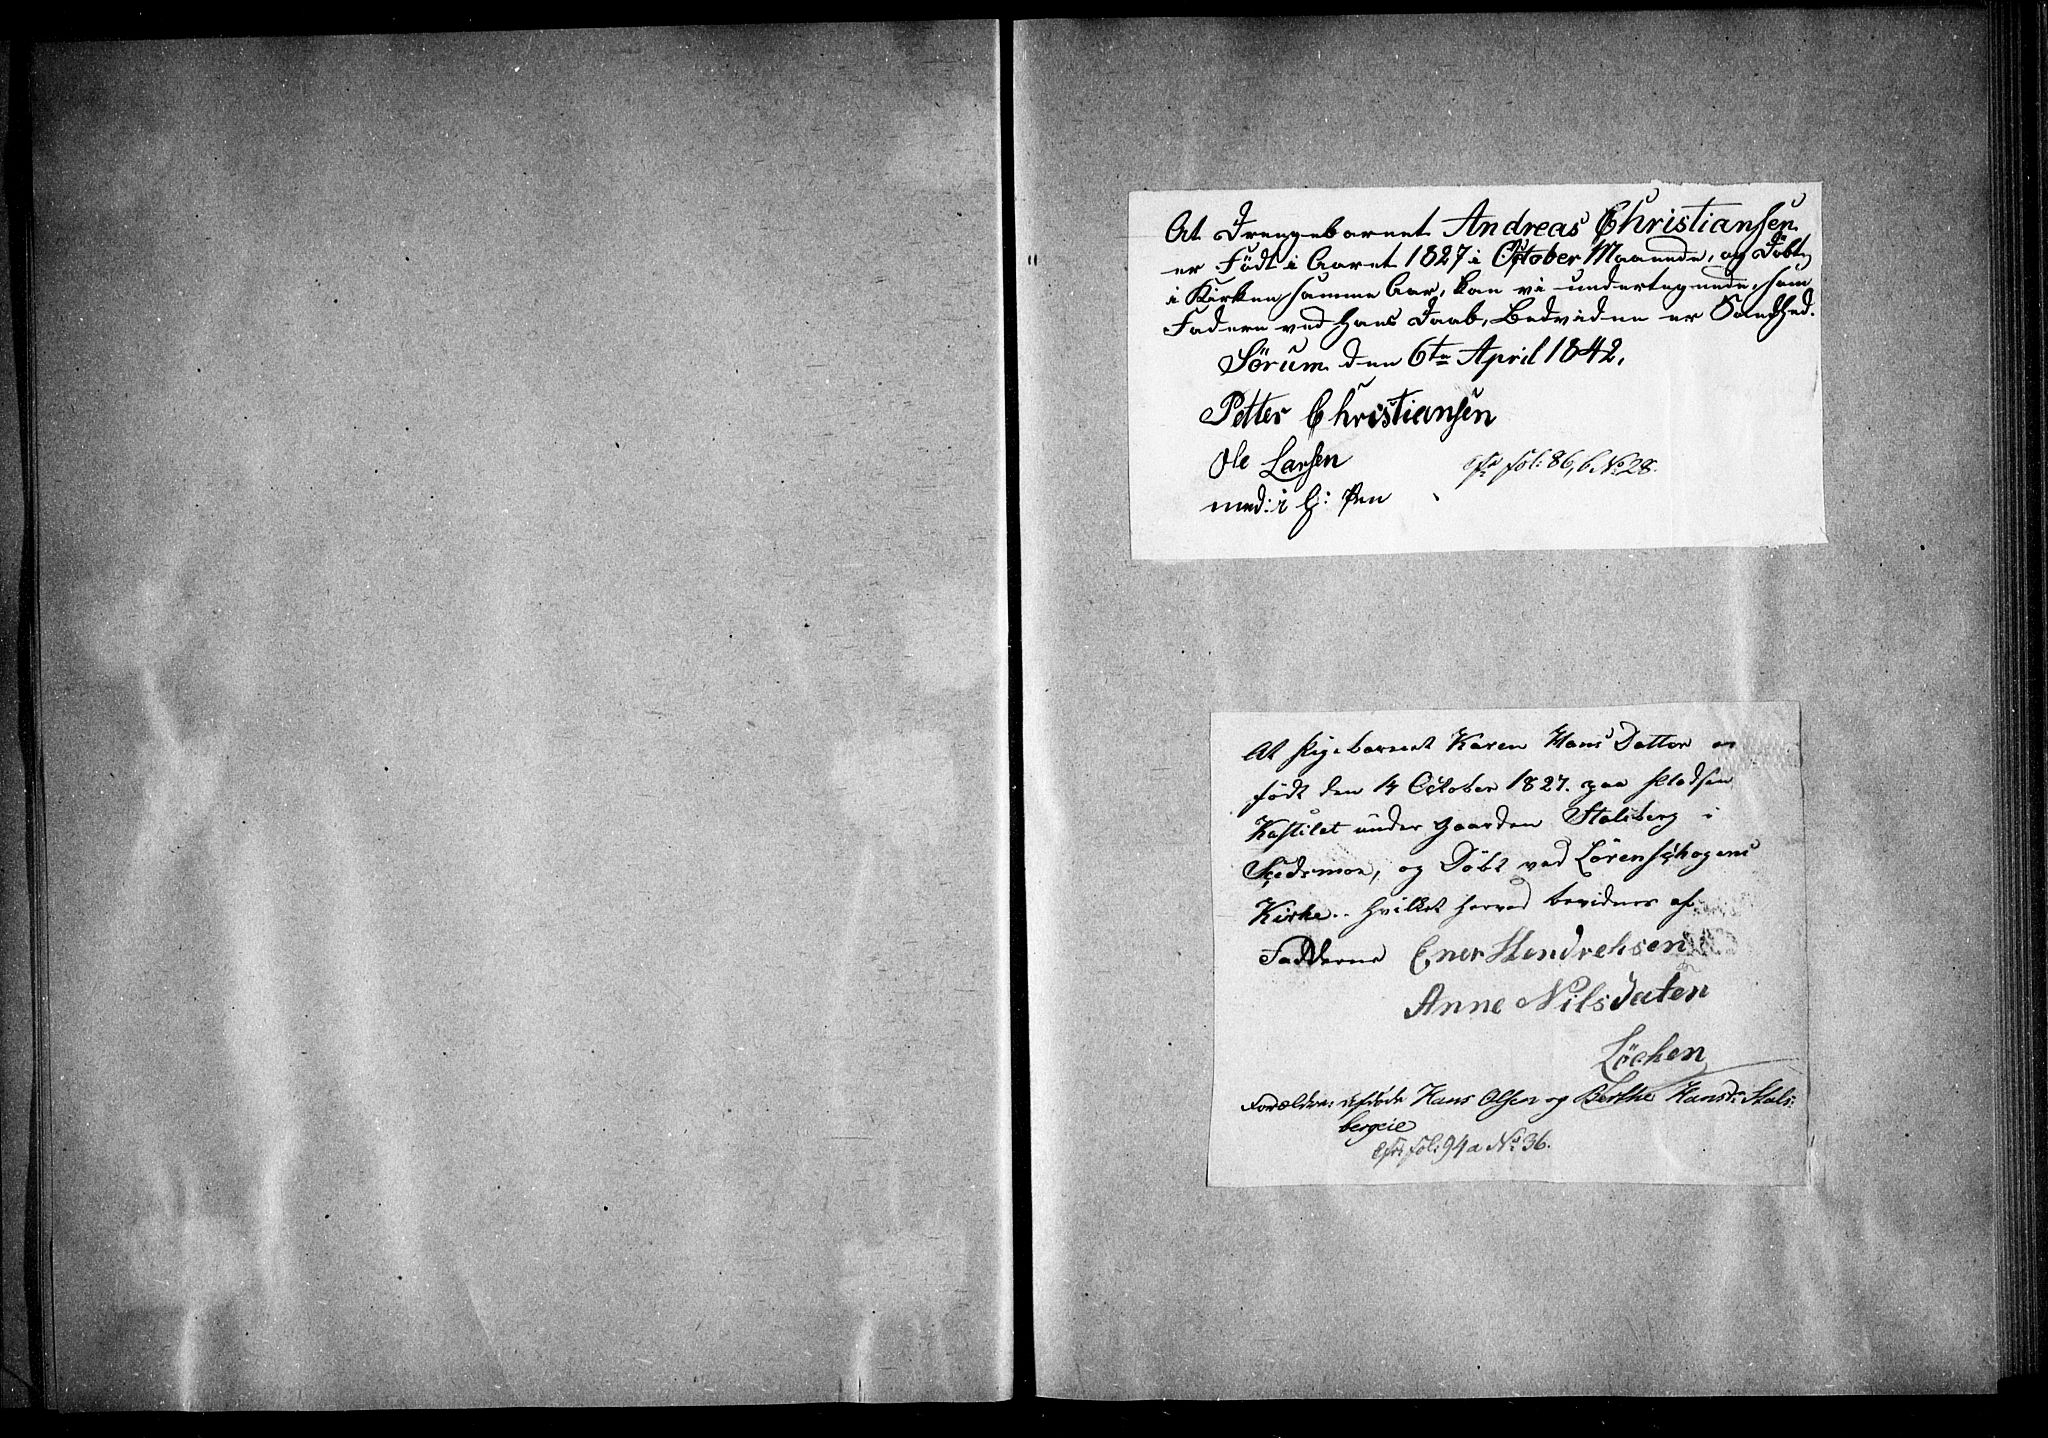 At Drengebarnet Andreas Christiansen
er Födt i Aaret 1827 i October Maanede, og Döbt
i Kirken samme Aar, kan vi undertegnede, som
Fadere ved Hans Daab, Bedvidne er Sandhed.
Sörum den 6te April 1842.
Petter Christiansen
Ole Larsen
med: i H: Pen
cfr fol: 86, b No 28.
At Pigebarnet Karen Hans Datter er
födt den 14 October 1827. paa Pladsen
Kastilet under Gaarden Stalsberg i
Skedsmoe, og Döbt ved Lörenschogens
Kirke.. hvilket herved bevidnes af
Fadderne Ener Hendrehsen
Anne Nilsdaten
Löchen
Forældre: Hans Olsen og Berthe Hansd: Stals:
bergeie
cfr: fol: 94 a No 36.